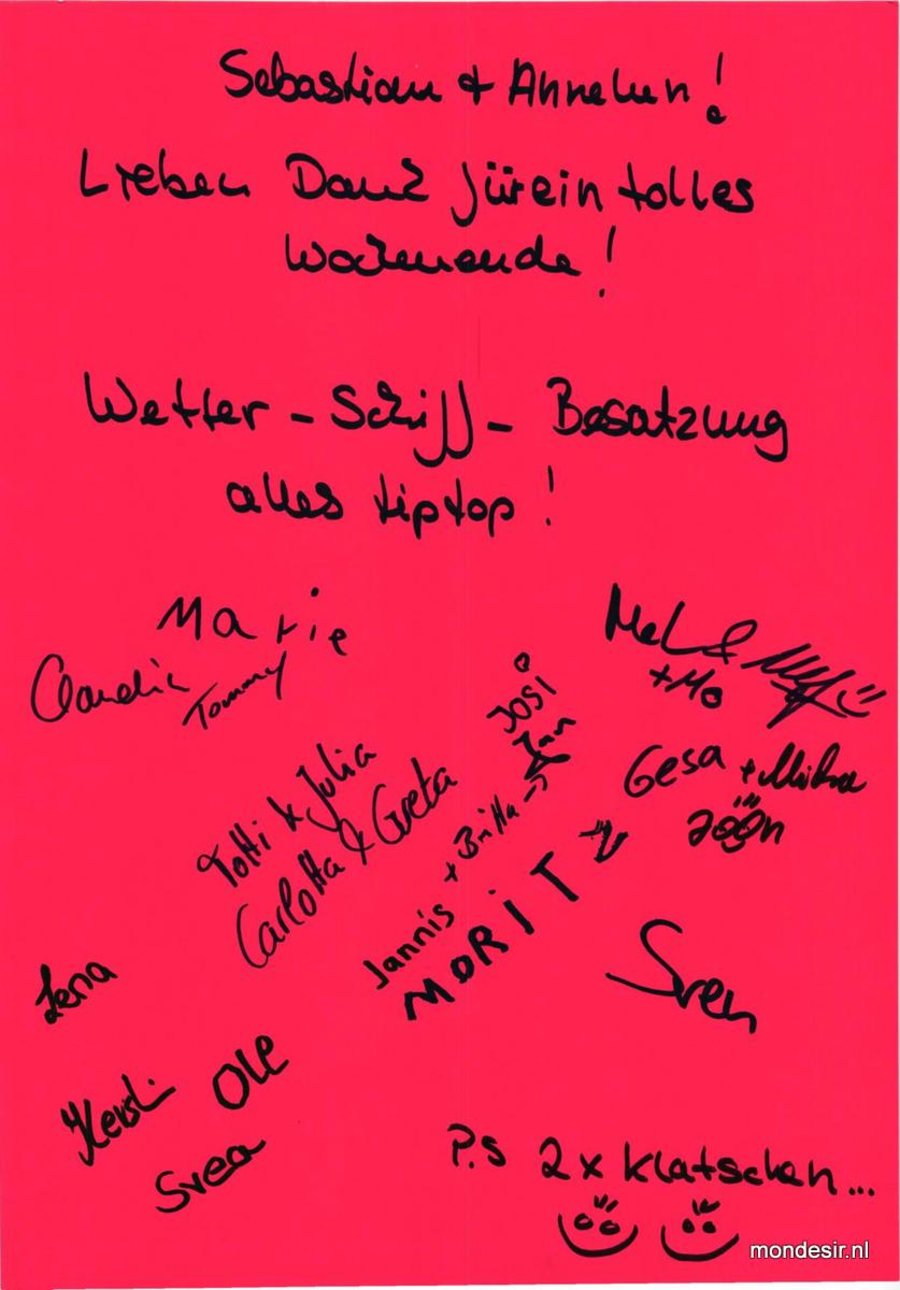 Sebastian + Annelien!
Lieben Dank für ein tolles
Wochenende!
Wetter - Schiff - Besatzung
alles tiptop!
Marie
Claudia
Tommy
Mel &
+ Mo
Josi
Totti & Julia
Carlotta & Greta
Gesa +
Jannis + Britta →
MORITZ
Sven
Lena
Kersti
Ole
Svea
P.S 2x klatschen...
mondesir.nl